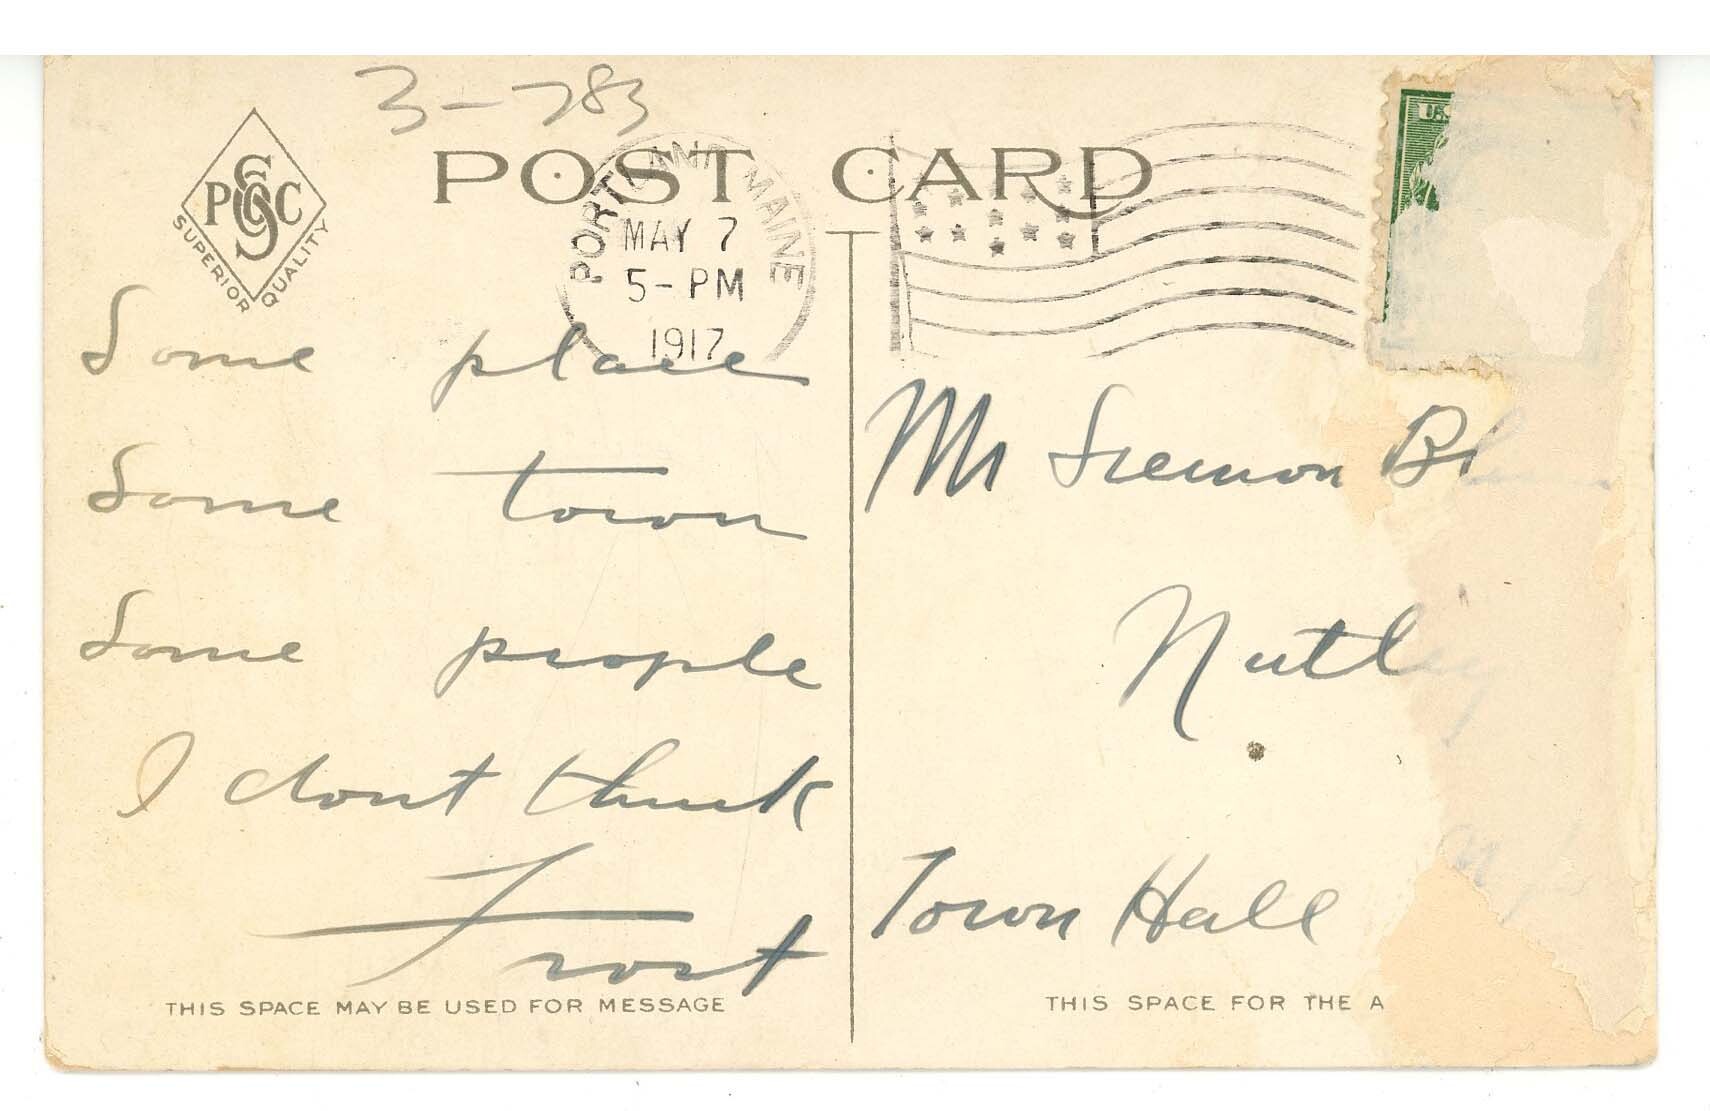 3-783
POST CARD
PGSC
SUPERIOR QUALITY
PORTLAND MAINE
MAY 7
5-PM
1917
U.S.
Some place
Some town
Some people
I dont think
Frost
Mr Bl
Nutley
Town Hall
THIS SPACE MAY BE USED FOR MESSAGE
THIS SPACE FOR THE A